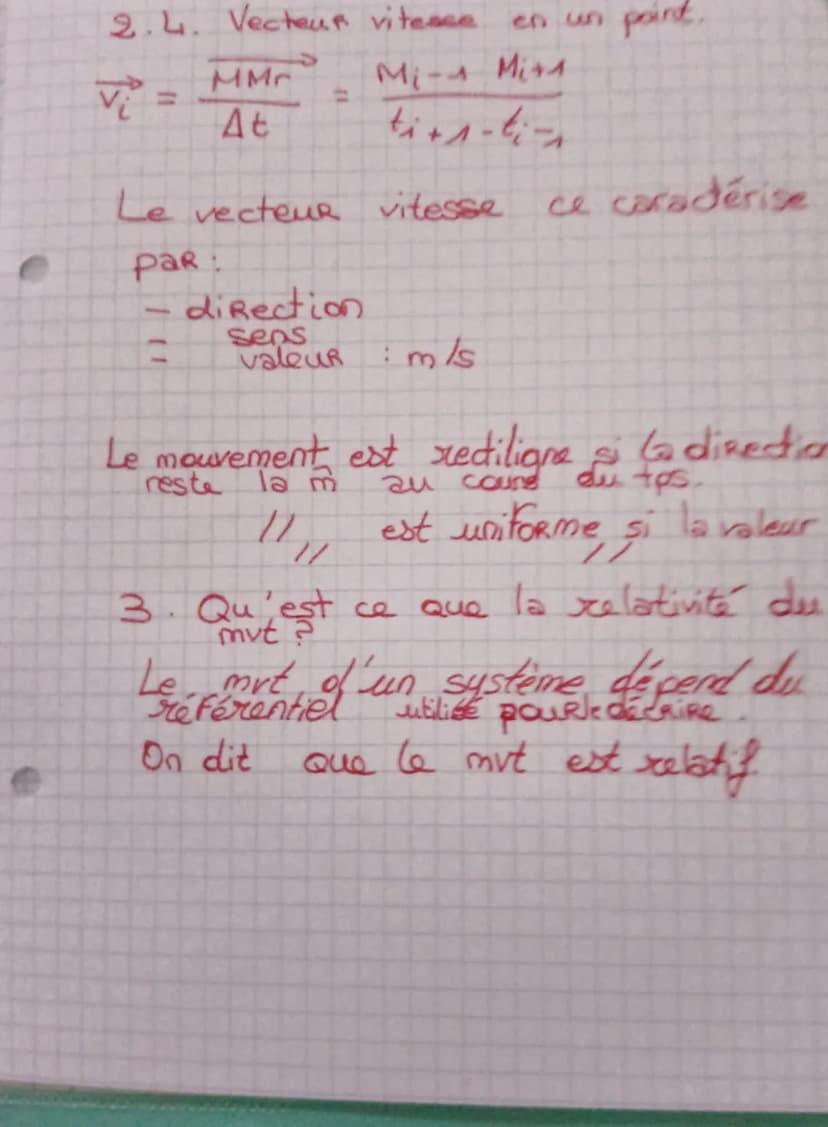 2.4. Vecteur vitesse en un point.
→vi = →MMr / Δt = Mi-1 Mi+1 / ti+1 - ti-1
Le vecteur vitesse ce caractérise
par :
- direction
- sens
- valeur : m/s
Le mouvement est rectiligne si la directio
reste la m̂ au cours du tps.
// // est uniforme si la valeur // 
3. Qu'est ce que la relativité du
mvt ?
Le mvt d'un système dépend du
référentiel utilisé pour le décrire.
On dit que le mvt est relatif